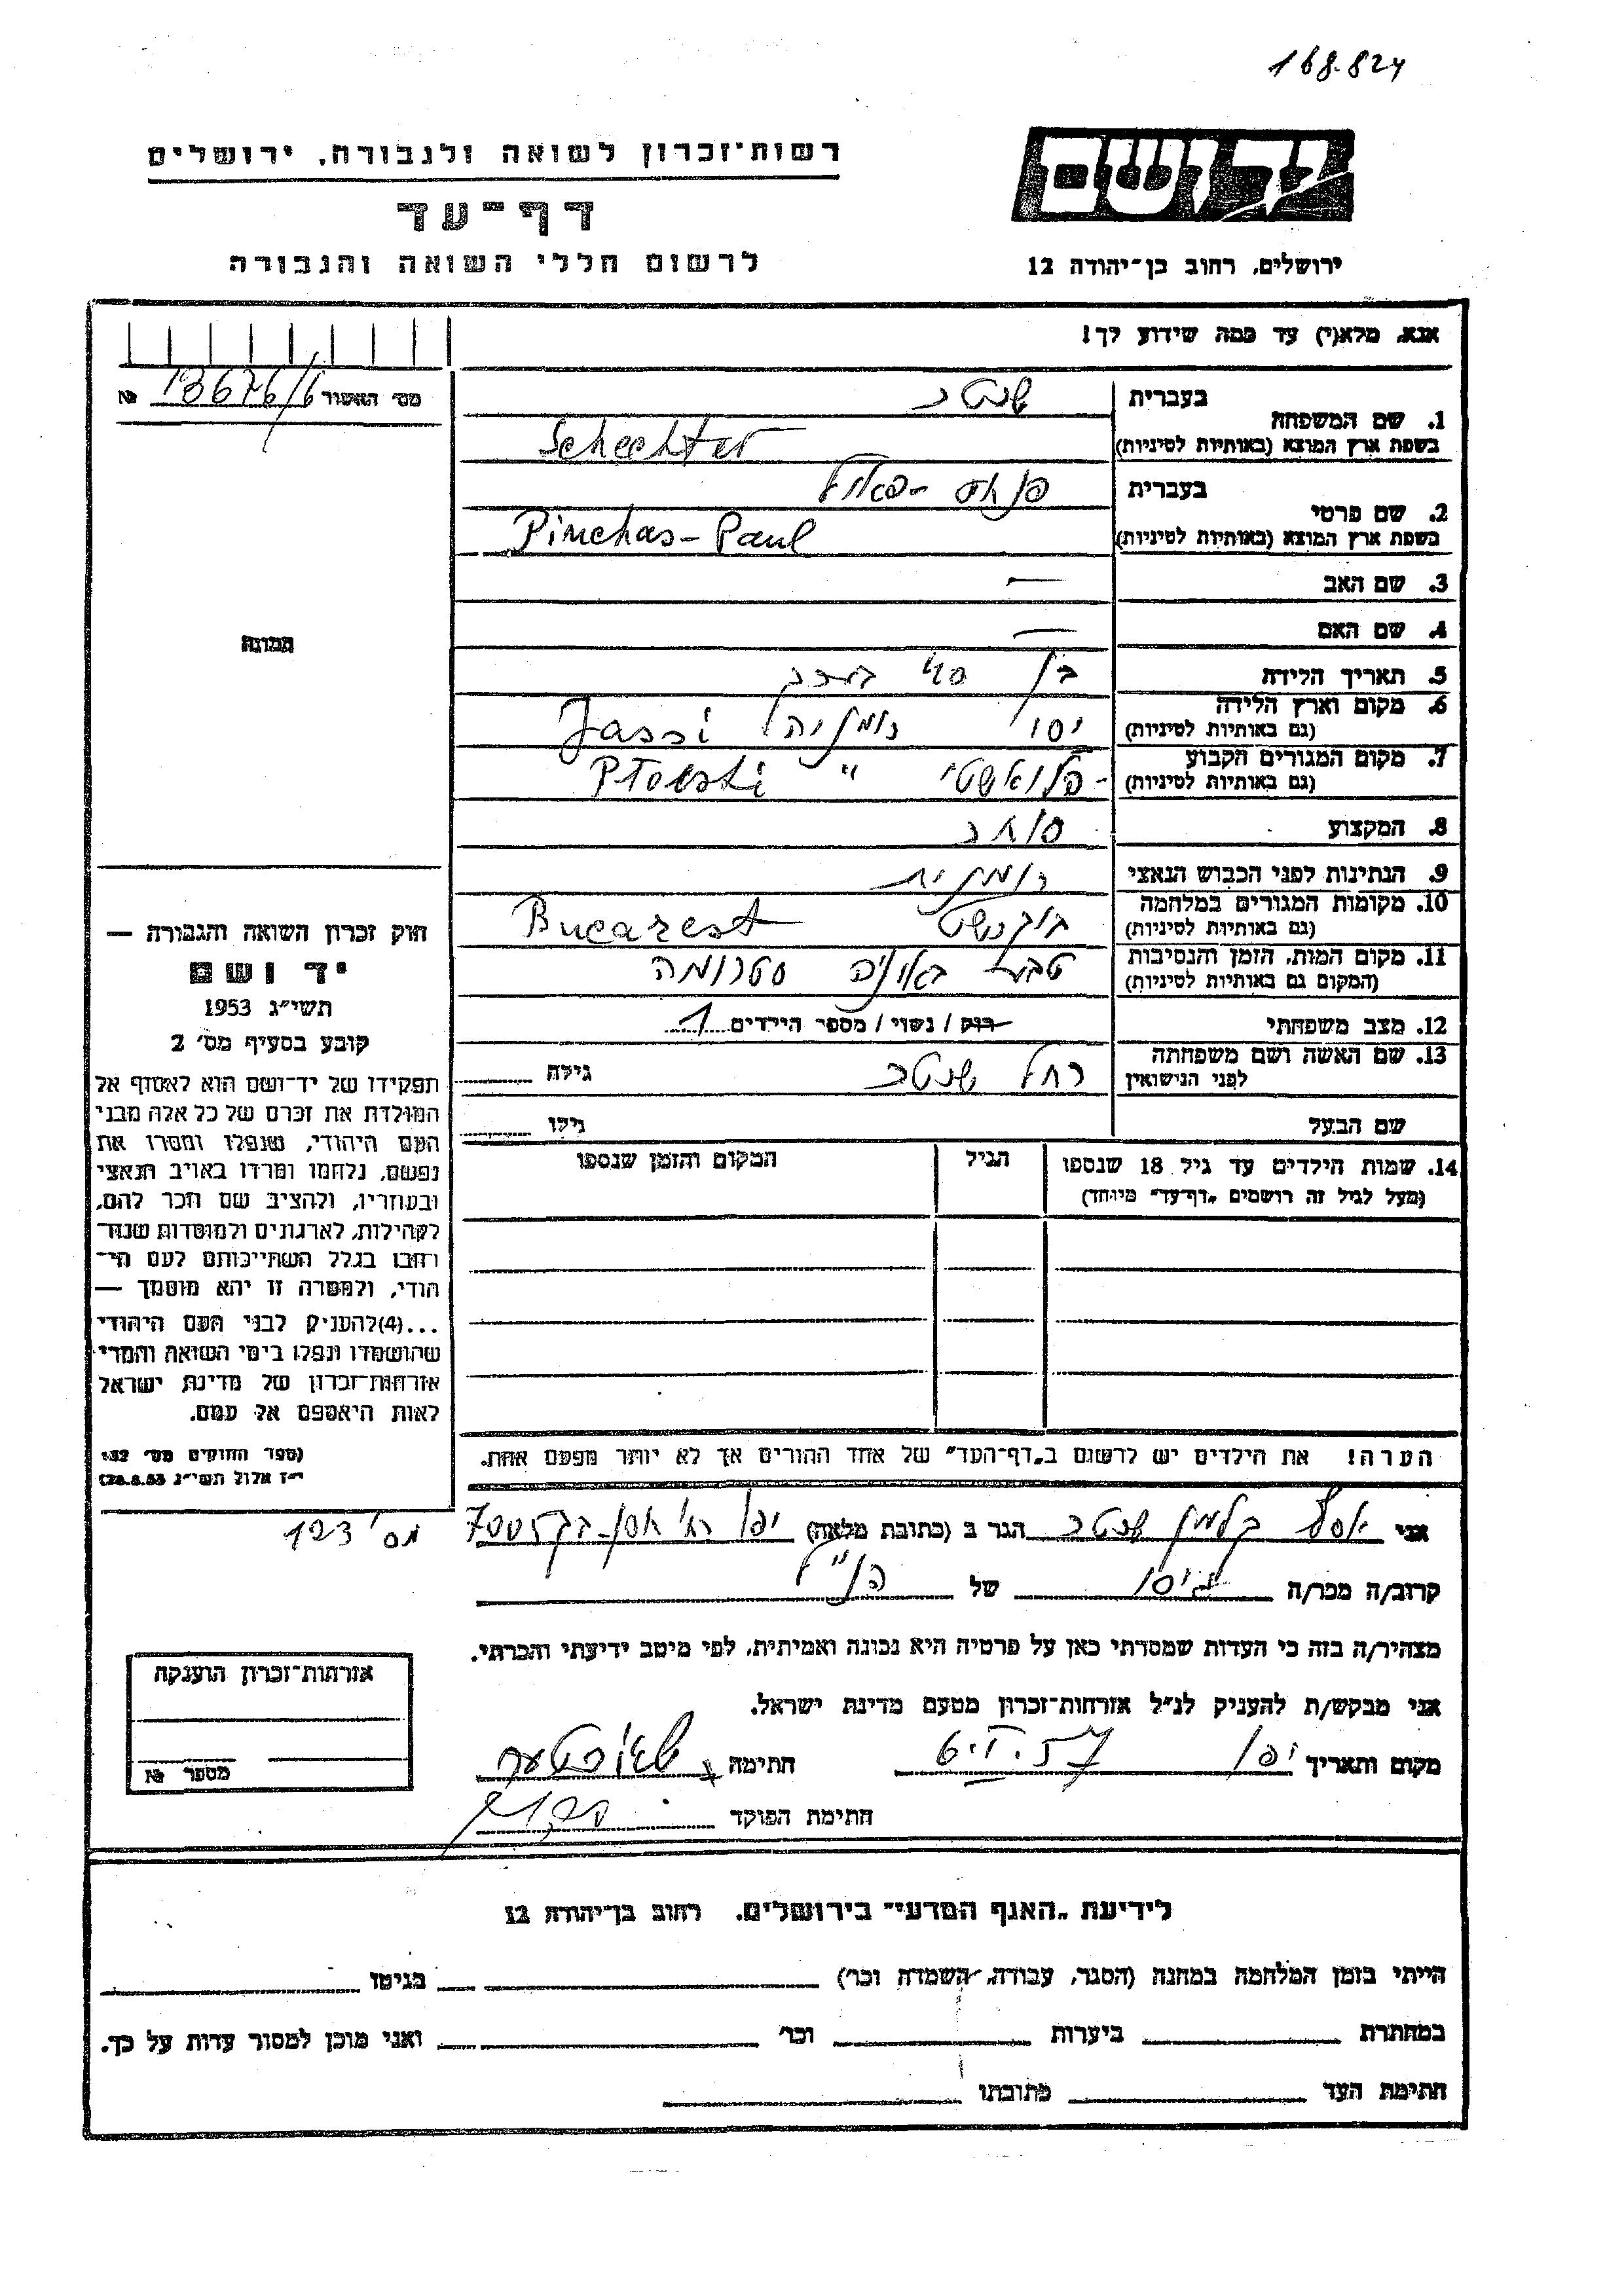 168.824
רשות־זכרון לשואה ולגבורה, ירושלים
יד ושם
דף־עד
לרשום חללי השואה והגבורה
ירושלים, רחוב בן־יהודה 12
אנא, מלא(י) עד כמה שידוע לך!
מס׳ האשור № 13676/6
1. שם המשפחה
בעברית שכטר
בשפת ארץ המוצא (באותיות לטיניות) Schechter
2. שם פרטי
בעברית פנחס - פאול
בשפת ארץ המוצא (באותיות לטיניות) Pinchas - Paul
3. שם האב —
4. שם האם —
תמונה
5. תאריך הלידה בן 40 בערך
6. מקום וארץ הלידה (גם באותיות לטיניות) יסי רומניה Jassi
7. מקום המגורים הקבוע (גם באותיות לטיניות) פלואשטי " Ploesti
8. המקצוע סוחר
9. הנתינות לפני הכבוש הנאצי רומנית
10. מקומות המגורים במלחמה (גם באותיות לטיניות) בוקרשט Bucarest
11. מקום המות, הזמן והנסיבות (המקום גם באותיות לטיניות) טבע באוניה סטרומה
12. מצב משפחתי רווק / נשוי / מספר הילדים 1
13. שם האשה ושם משפחתה לפני הנישואין רחל שכטר גילה
שם הבעל גילו
14. שמות הילדים עד גיל 18 שנספו הגיל המקום והזמן שנספו
(מעל לגיל זה רושמים „דף־עד״ מיוחד)
חוק זכרון השואה והגבורה —
יד ושם
תשי״ג 1953
קובע בסעיף מס׳ 2
תפקידו של יד־ושם הוא לאסוף אל
המולדת את זכרם של כל אלה מבני
העם היהודי, שנפלו ומסרו את
נפשם, נלחמו ומרדו באויב הנאצי
ובעוזריו, ולהציב שם וזכר להם,
לקהילות, לארגונים ולמוסדות שנח־
רחבו בגלל השתייכותם לעם הי־
הודי, ולמטרה זו יהא מוסמך —
...(4)להעניק לבני העם היהודי
שהושמדו ונפלו בימי השואה והמרי
אזרחות־זכרון של מדינת ישראל
לאות היאספם אל עמם.
(ספר החוקים מס׳ 132
י״ז אלול תשי״ג 28.8.53)
הערה! את הילדים יש לרשום ב„דף־העד״ של אחד ההורים אך לא יותר מפעם אחת.
אני קלמן שכטר הגר ב (כתובת מלאה) יפו מס׳ 123
קרוב/ה מכר/ה גיסו של הנ״ל
מצהיר/ה בזה כי העדות שמסרתי כאן על פרטיה היא נכונה ואמיתית, לפי מיטב ידיעתי והכרתי.
אני מבקש/ת להעניק לנ״ל אזרחות־זכרון מטעם מדינת ישראל.
מקום ותאריך יפו חתימה
חתימת הפוקד
אזרחות־זכרון הוענקה
מספר №
לידיעת „האגף המדעי״ בירושלים, רחוב בן־יהודה 12
הייתי בזמן המלחמה במחנה (הסגר, עבודה, השמדה וכו׳) בגיטו
במחתרת ביערות וכו׳ ואני מוכן למסור עדות על כך.
חתימת העד כתובתו